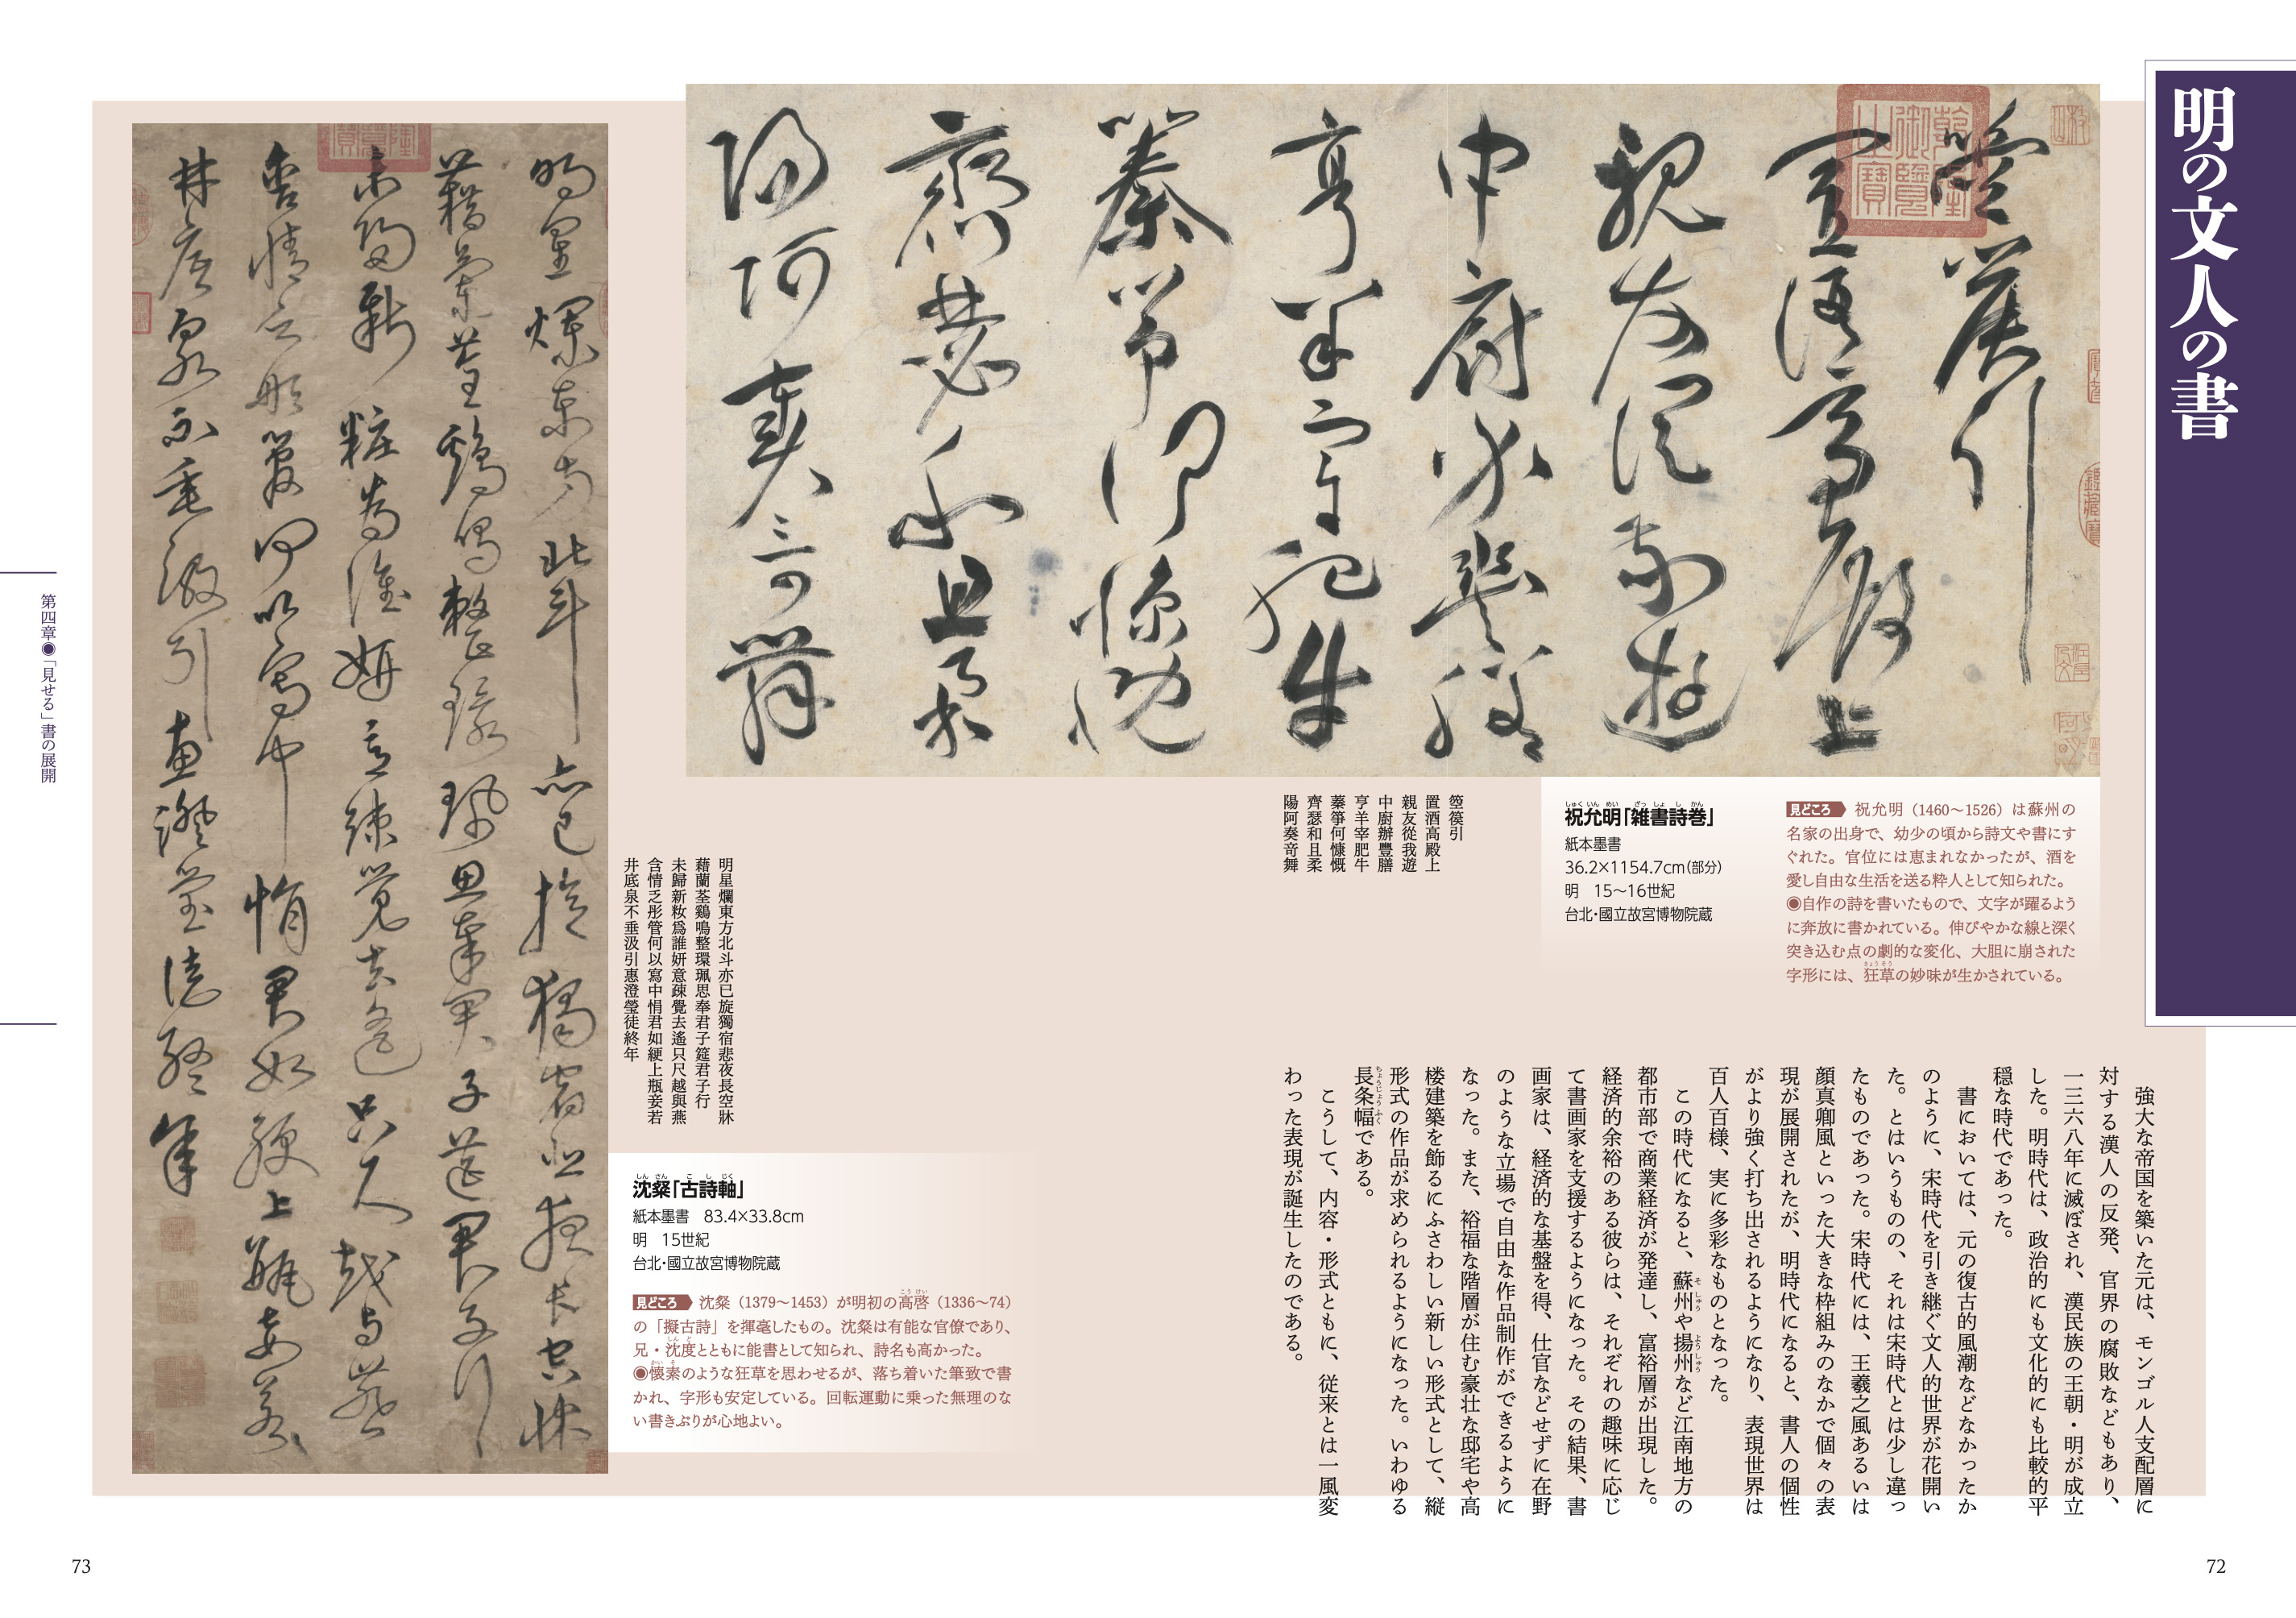 明の文人の書
強大な帝国を築いた元は、モンゴル人支配層に
対する漢人の反発、官界の腐敗などもあり、
一三六八年に滅ぼされ、漢民族の王朝・明が成立
した。明時代は、政治的にも文化的にも比較的平
穏な時代であった。
書においては、元の復古的風潮などなかったか
のように、宋時代を引き継ぐ文人的世界が花開い
た。とはいうものの、それは宋時代とは少し違っ
たものであった。宋時代には、王羲之風あるいは
顔真卿風といった大きな枠組みのなかで個々の表
現が展開されたが、明時代になると、書人の個性
がより強く打ち出されるようになり、表現世界は
百人百様、実に多彩なものとなった。
この時代になると、蘇州や揚州など江南地方の
都市部で商業経済が発達し、富裕層が出現した。
経済的余裕のある彼らは、それぞれの趣味に応じ
て書画家を支援するようになった。その結果、書
画家は、経済的な基盤を得、仕官などせずに在野
のような立場で自由な作品制作ができるように
なった。また、裕福な階層が住む豪壮な邸宅や高
楼建築を飾るにふさわしい新しい形式として、縦
形式の作品が求められるようになった。いわゆる
長条幅である。
こうして、内容・形式ともに、従来とは一風変
わった表現が誕生したのである。
そしゅう
ようしゅう
ちょうじょうふく
見どころ 祝允明（1460〜1526）は蘇州の
名家の出身で、幼少の頃から詩文や書にす
ぐれた。官位には恵まれなかったが、酒を
愛し自由な生活を送る粋人として知られた。
◉自作の詩を書いたもので、文字が躍るよう
に奔放に書かれている。伸びやかな線と深く
突き込む点の劇的な変化、大胆に崩された
字形には、狂草の妙味が生かされている。
きょうそう
しゅくいんめい ざっしょしかん
祝允明「雑書詩巻」
紙本墨書
36.2×1154.7cm（部分）
明 15〜16世紀
台北・國立故宮博物院蔵
箜篌引
置酒高殿上
親友從我遊
中廚辦豐膳
亨羊宰肥牛
蓁箏何慷慨
齊瑟和且柔
陽阿奏竒舞
明星爛東方北斗亦已旋獨宿悲夜長空牀
藉蘭荃鷄鳴整環珮思奉君子筵君子行
未歸新妝爲誰妍意疎覺去遙只尺越與燕
含情乏彤管何以寫中悁君如綆上瓶妾若
井底泉不垂汲引惠澄瑩徒終年
しんさん こしじく
沈粲「古詩軸」
紙本墨書 83.4×33.8cm
明 15世紀
台北・國立故宮博物院蔵
見どころ 沈粲（1379〜1453）が明初の高啓（1336〜74）
の「擬古詩」を揮毫したもの。沈粲は有能な官僚であり、
兄・沈度とともに能書として知られ、詩名も高かった。
◉懐素のような狂草を思わせるが、落ち着いた筆致で書
かれ、字形も安定している。回転運動に乗った無理のな
い書きぶりが心地よい。
こうけい
しんど
かいそ
第四章◉「見せる」書の展開
73
72